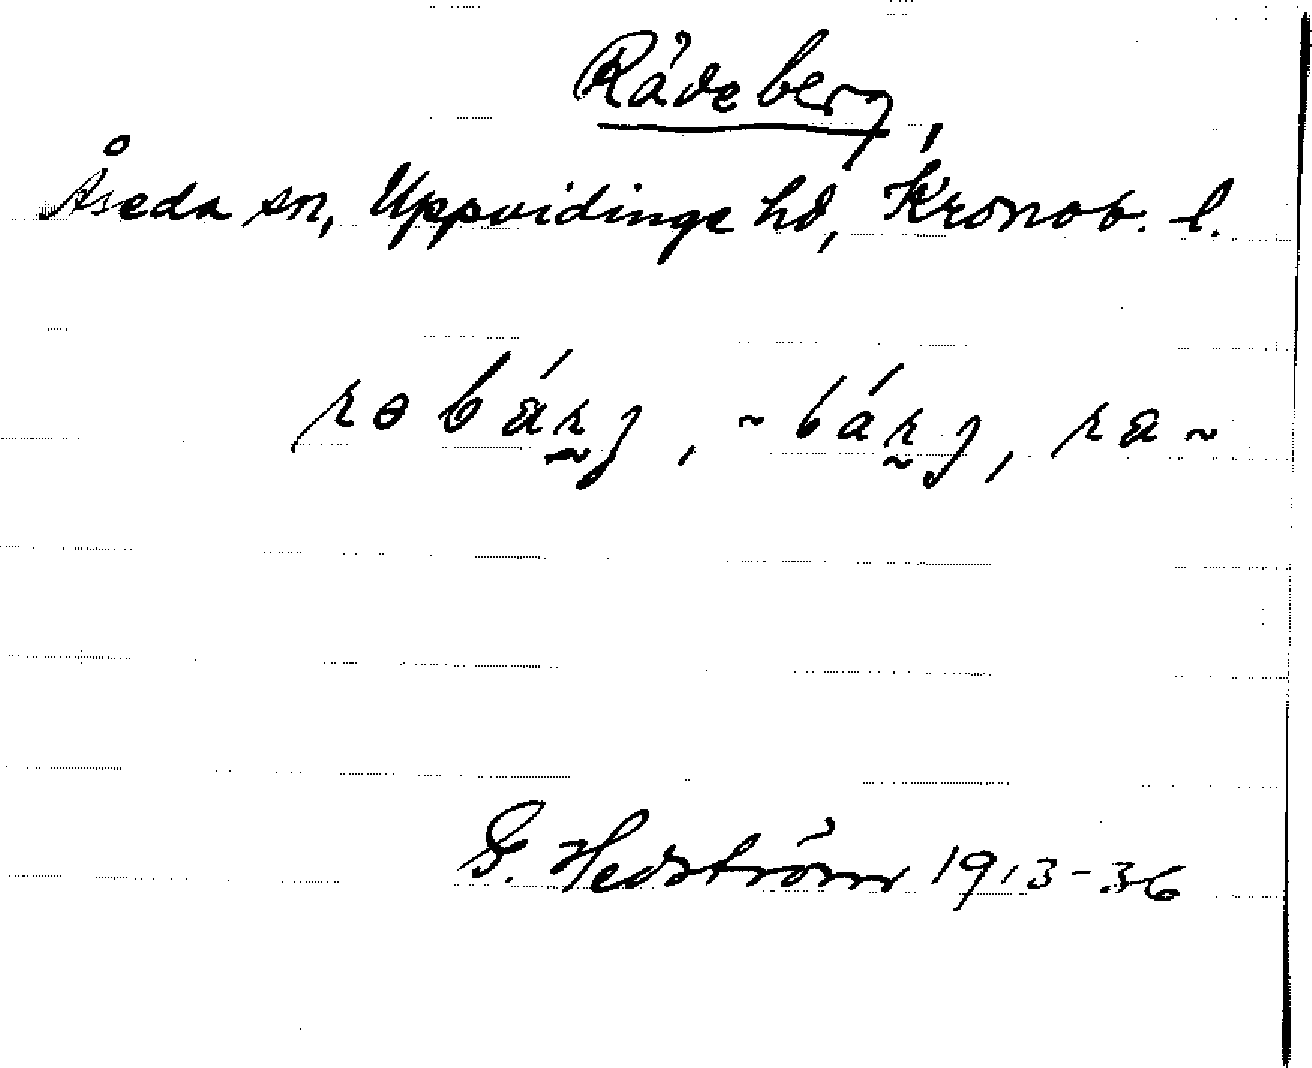 Rådeberg,
Åseda sn, Uppvidinge hd, Kronob. l.
G. Hedström 1913-36